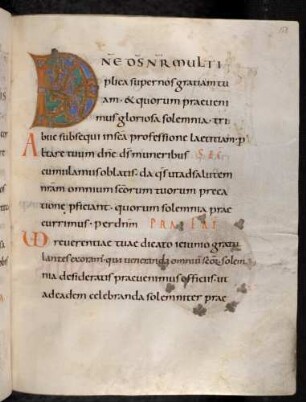 DNE DS NR MULTI
plica super nos gratiam tu
am · & quorum praeveni
mus gloriosa solemnia · tri
bue subsequi in sca professione laetitiam · p
Altare tuum dne ds muneribus SEC
cumulamus oblatis · da qs ut ad salutem
nram omnium scorum tuorum preca
tione pficiant · quorum solemnia prae
currimus · per dnm PRAE FAT
VD reverentiae tuae dicato ieiunio gratu
lantes &
qui veneranda omnium scor solem
nia desideratis praevenimus officiis · ut
ad eadem celebranda solemniter prae